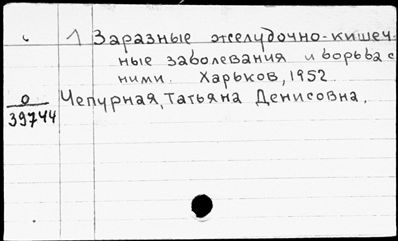 1 Заразные желудочно-кишеч-
ные заболевания и борьба с
ними. Харьков, 1952
0 Чепурная, Татьяна Денисовна.
39744